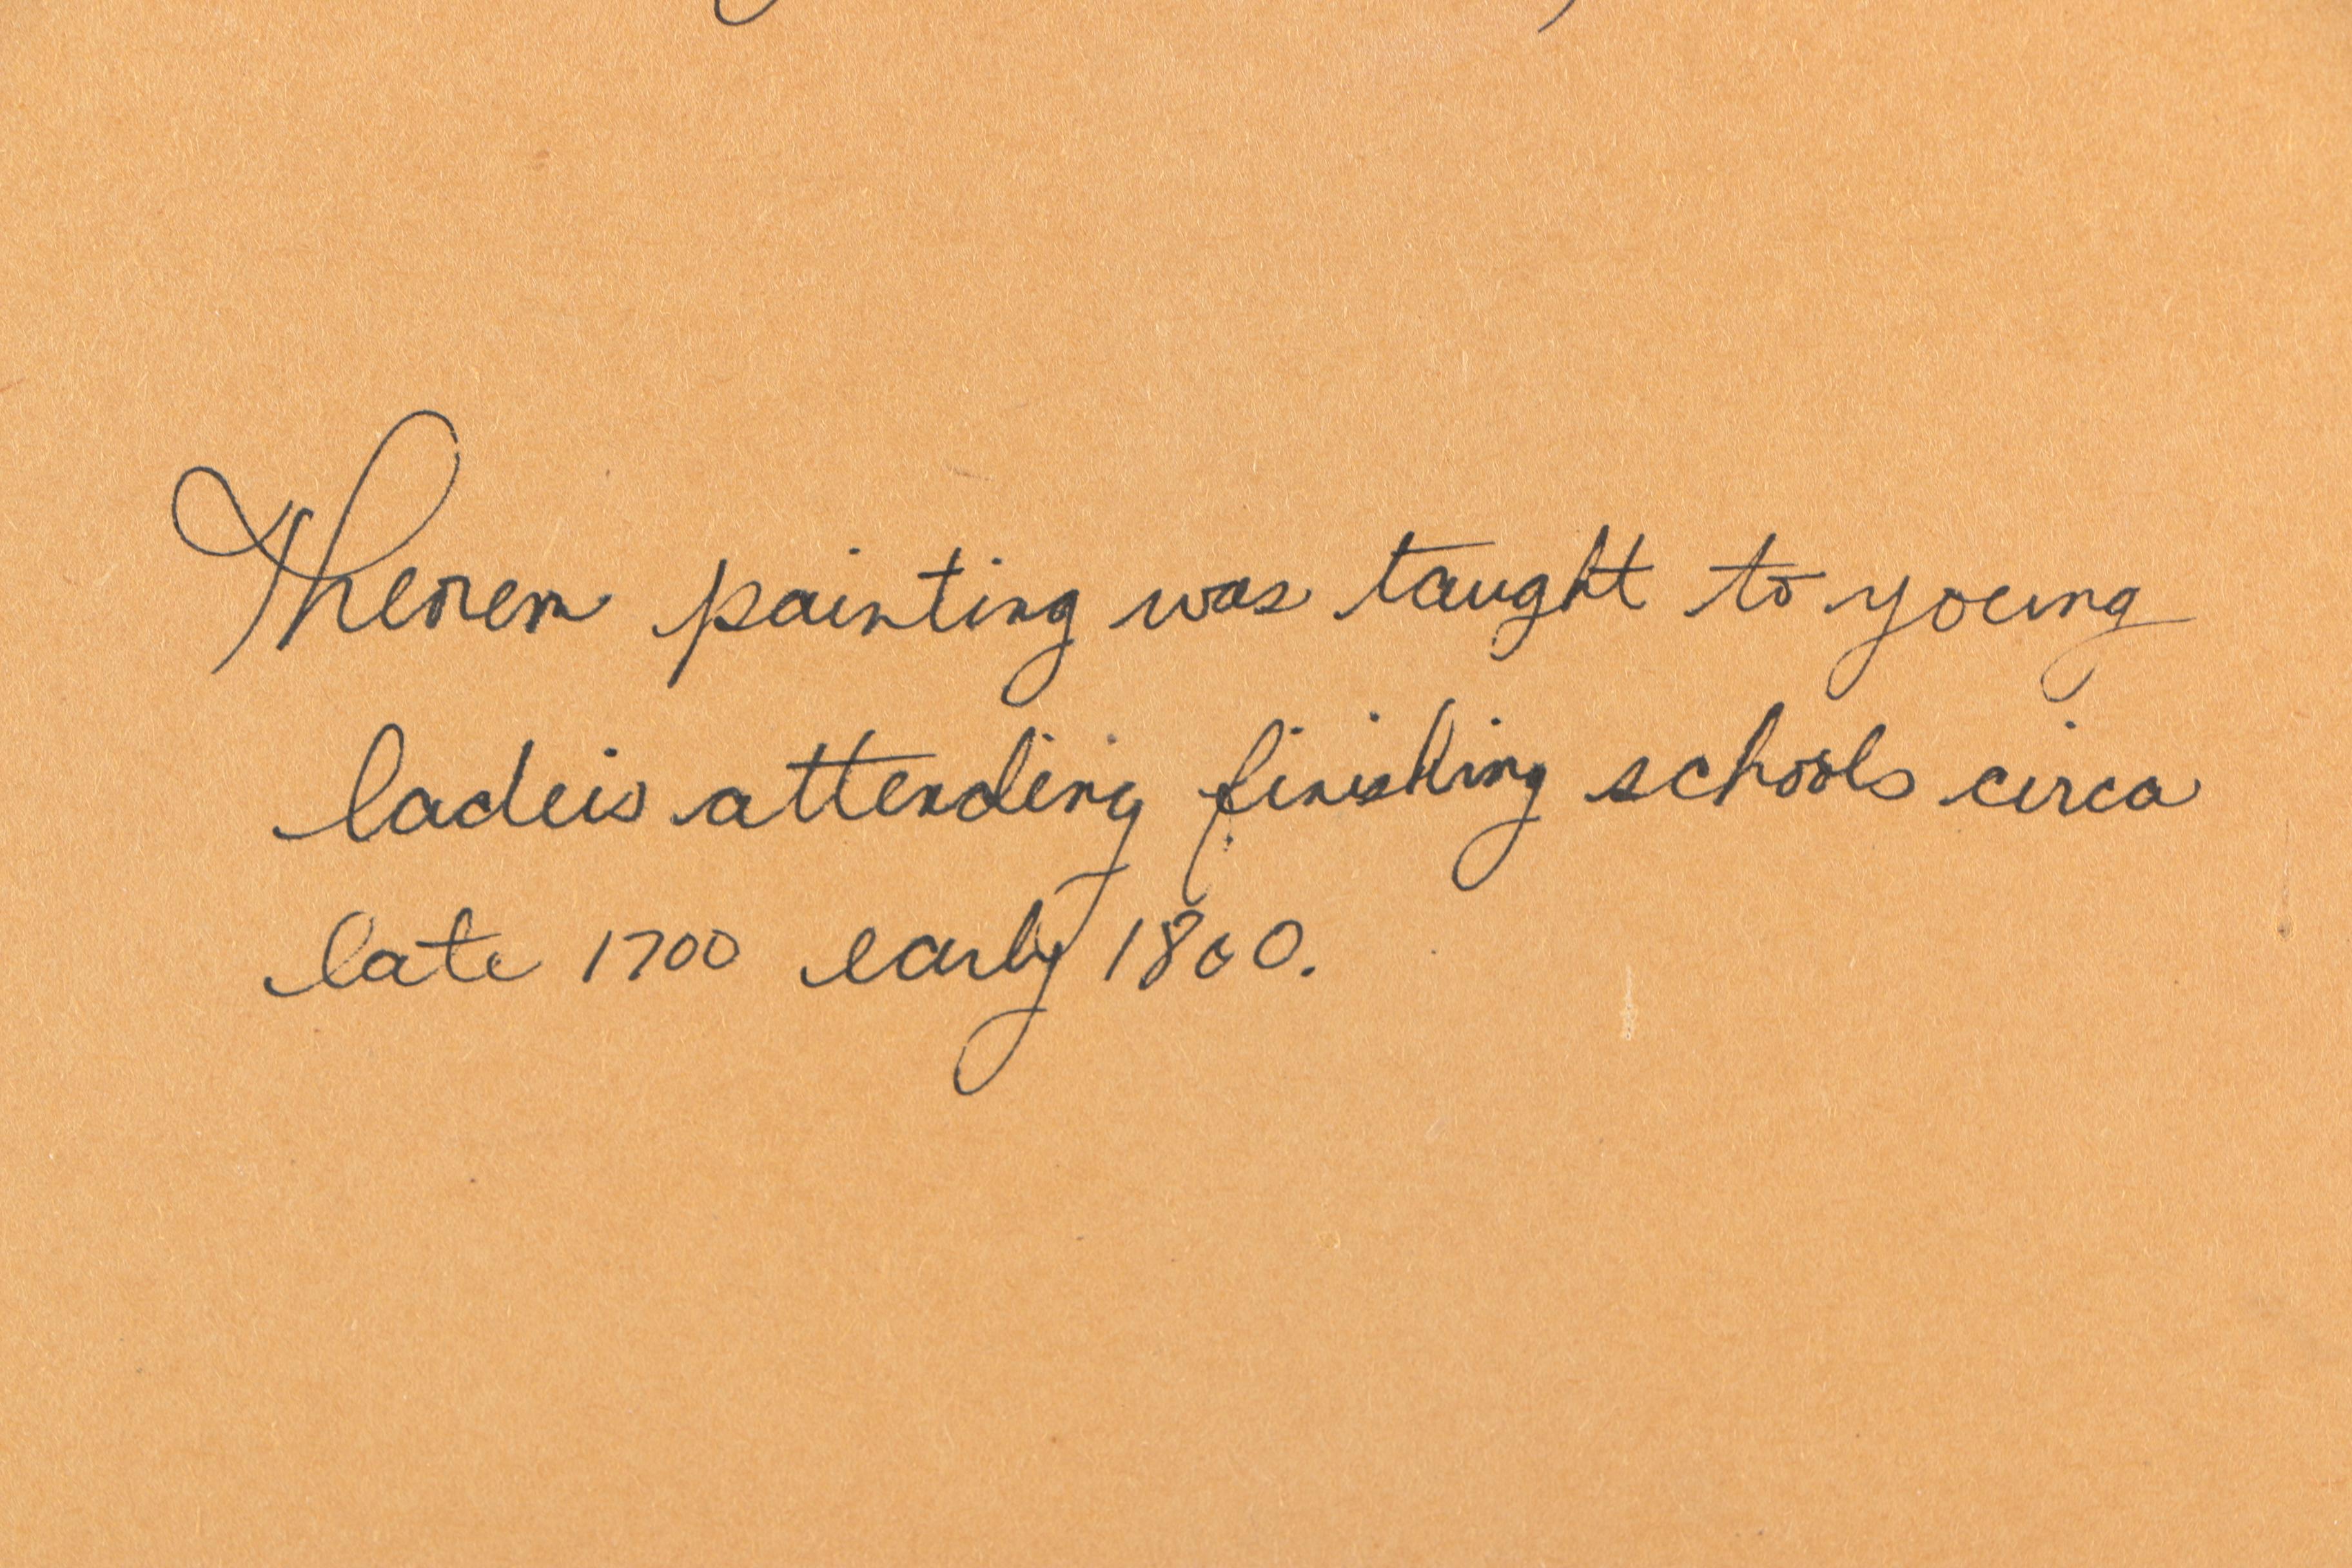 Theorem painting was taught to young
ladeis attending finishing schools circa
late 1700 early 1800.